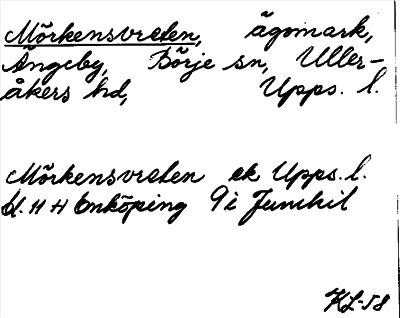 Mörkensvreten, ägomark,
Ängeby, Börje sn, Uller-
åkers hd, Upps. l.
Mörkensvreten ek Upps. l.
d. H H Enköping 9 i
KL-58